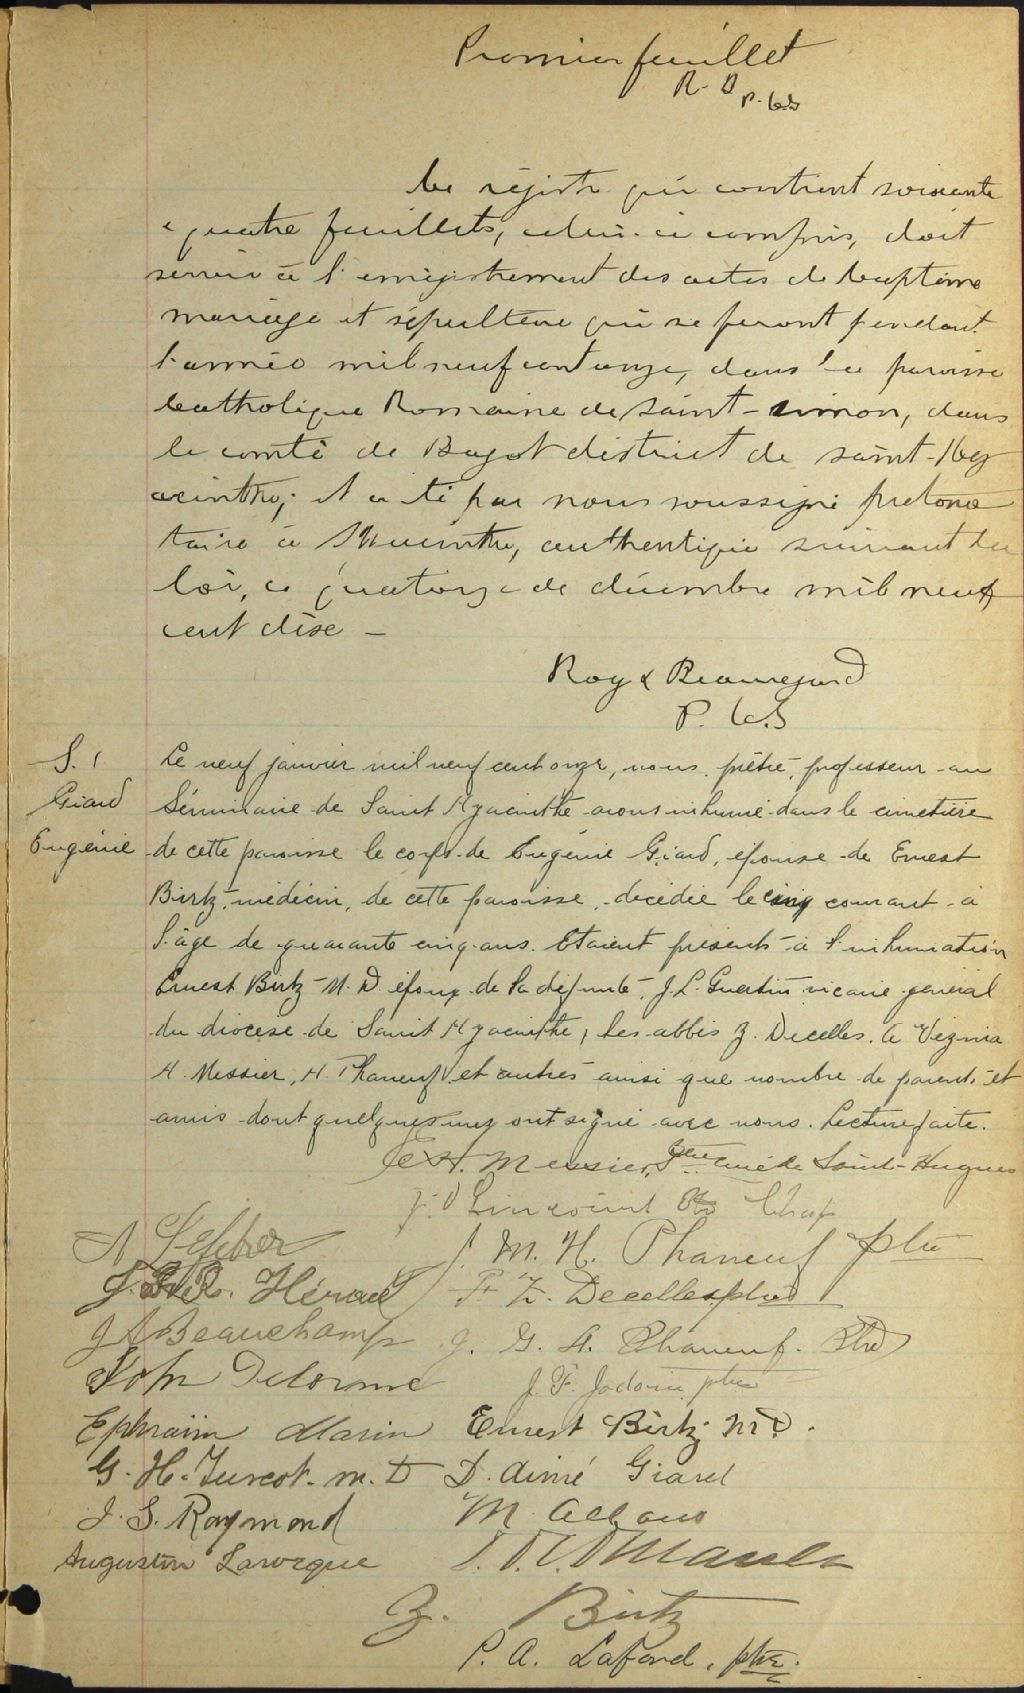 Premier feuillet
R. B
P. C.S
Ce régistre qui contient soixante
& quatre feuillets, celui-ci compris, doit
servir à l'enrégistrement des actes de baptême
mariage et sépulture qui se feront pendant
l'année mil neuf cent onze, dans la paroisse
Catholique Romaine de Saint-Simon, dans
le comté de Bagot district de Saint-Hy
acinthe; et a été par nous soussigné protono
taire à StHyacinthe, authentiqué suivant la
loi, ce quatorze de décembre mil neuf
cent dix -
Roy & Beauregard
P. C.S
S. 1
Giard
Eugénie
Le neuf janvier mil neuf cent onze, nous, prêtre, professeur au
Séminaire de Saint Hyacinthe avons inhumé dans le cimetière
de cette paroisse le corps de Eugénie Giard, épouse de Ernest
Birtz, médecin, de cette paroisse, décédée le cinq courant à
l'âge de quarante cinq ans. Etaient présents à l'inhumation
Ernest Birtz M. D. époux de la défunte, J. L. Guertin vicaire général
du diocèse de Saint Hyacinthe, les abbés Z. Decelles, A Vézina
H. Messier, H. Phaneuf et autres ainsi que nombre de parents et
amis dont quelques uns ont signé avec nous. Lecture faite.
H. Messier, Ptre curé de Saint-Hugues
J. M. H. Phaneuf ptre
Héroux F. Z. Decelles ptre
J A Beauchamp J. G. A. Phaneuf. Ptre
John Delorme J. F. Jodoin ptre
Ephraïm Marin Ernest Birtz M.D.
G. H. Turcot. m. D D. Aimé Giard
J. S. Raymond M.
Augustin Larocque
Z. Birtz
P. A. Lafond, ptre.